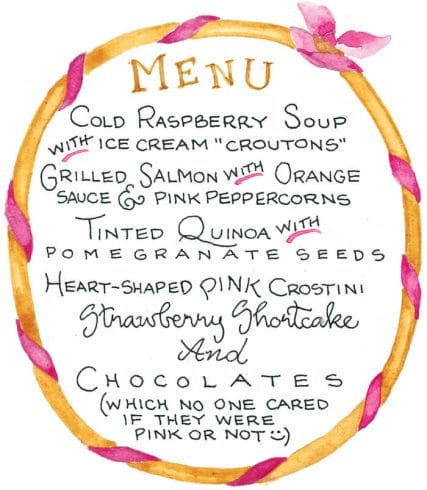 MENU
COLD RASPBERRY SOUP
WITH ICE CREAM "CROUTONS"
GRILLED SALMON WITH ORANGE
SAUCE & PINK PEPPERCORNS
TINTED QUINOA WITH
POMEGRANATE SEEDS
HEART-SHAPED PINK CROSTINI
Strawberry Shortcake
And
CHOCOLATES
(WHICH NO ONE CARED
IF THEY WERE
PINK OR NOT☺)